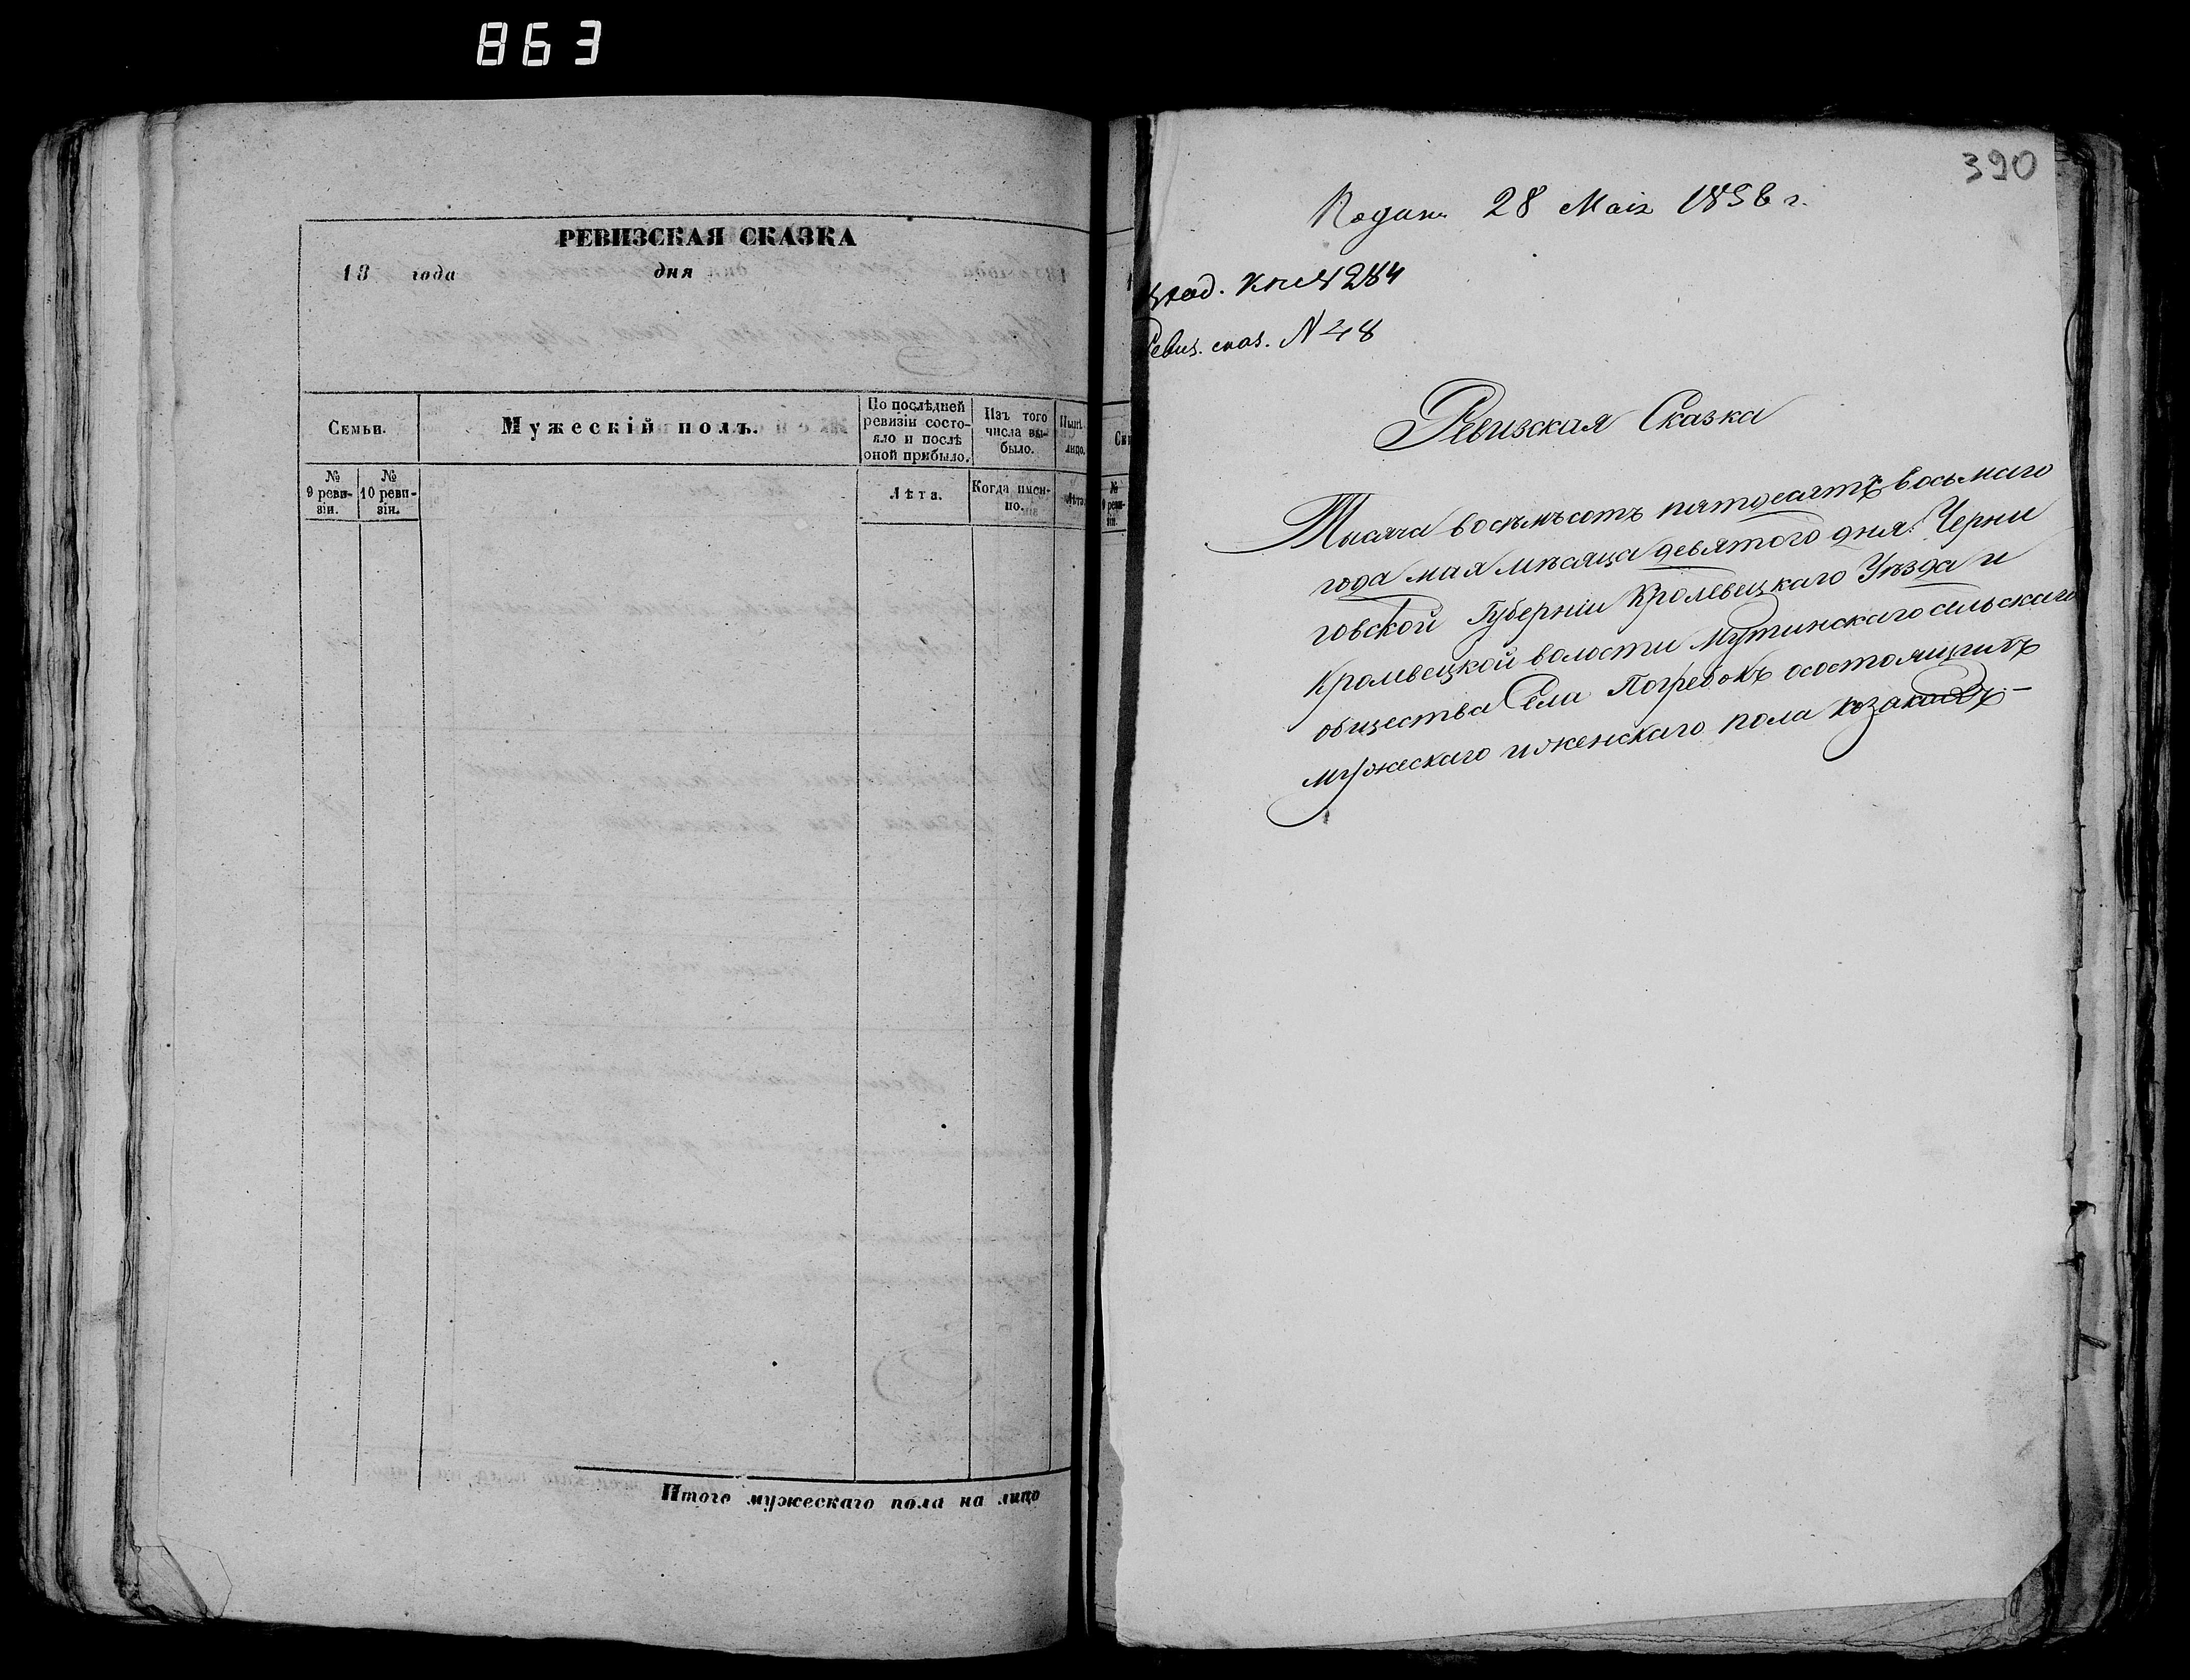 863
РЕВИЗСКАЯ СКАЗКА
18 года дня
Семьи.
Мужескій полъ.
По послѣдней ревизіи состояло и послѣ оной прибыло.
Изъ того числа выбыло.
Нынѣ на лицо.
№ 9 ревизіи.
№ 10 ревизіи.
Лѣта.
Когда именно.
Лѣта.
Итого мужескаго пола на лицо
390
Подан. 28 Маія 1858 г.
кн. № 284
Ревиз. сказ. N 48
Ревизская Сказка
Тысяча восемьсотъ пятдесятъ восьмаго
года мая мѣсяца девятого дня. Черни
говской Губерніи Кролевецкаго Уѣзда и
Кролевецкой волости Мутинскаго сельскаго
общества Села Погребокъ осостоящихъ
мужескаго и женскаго пола козакахъ –